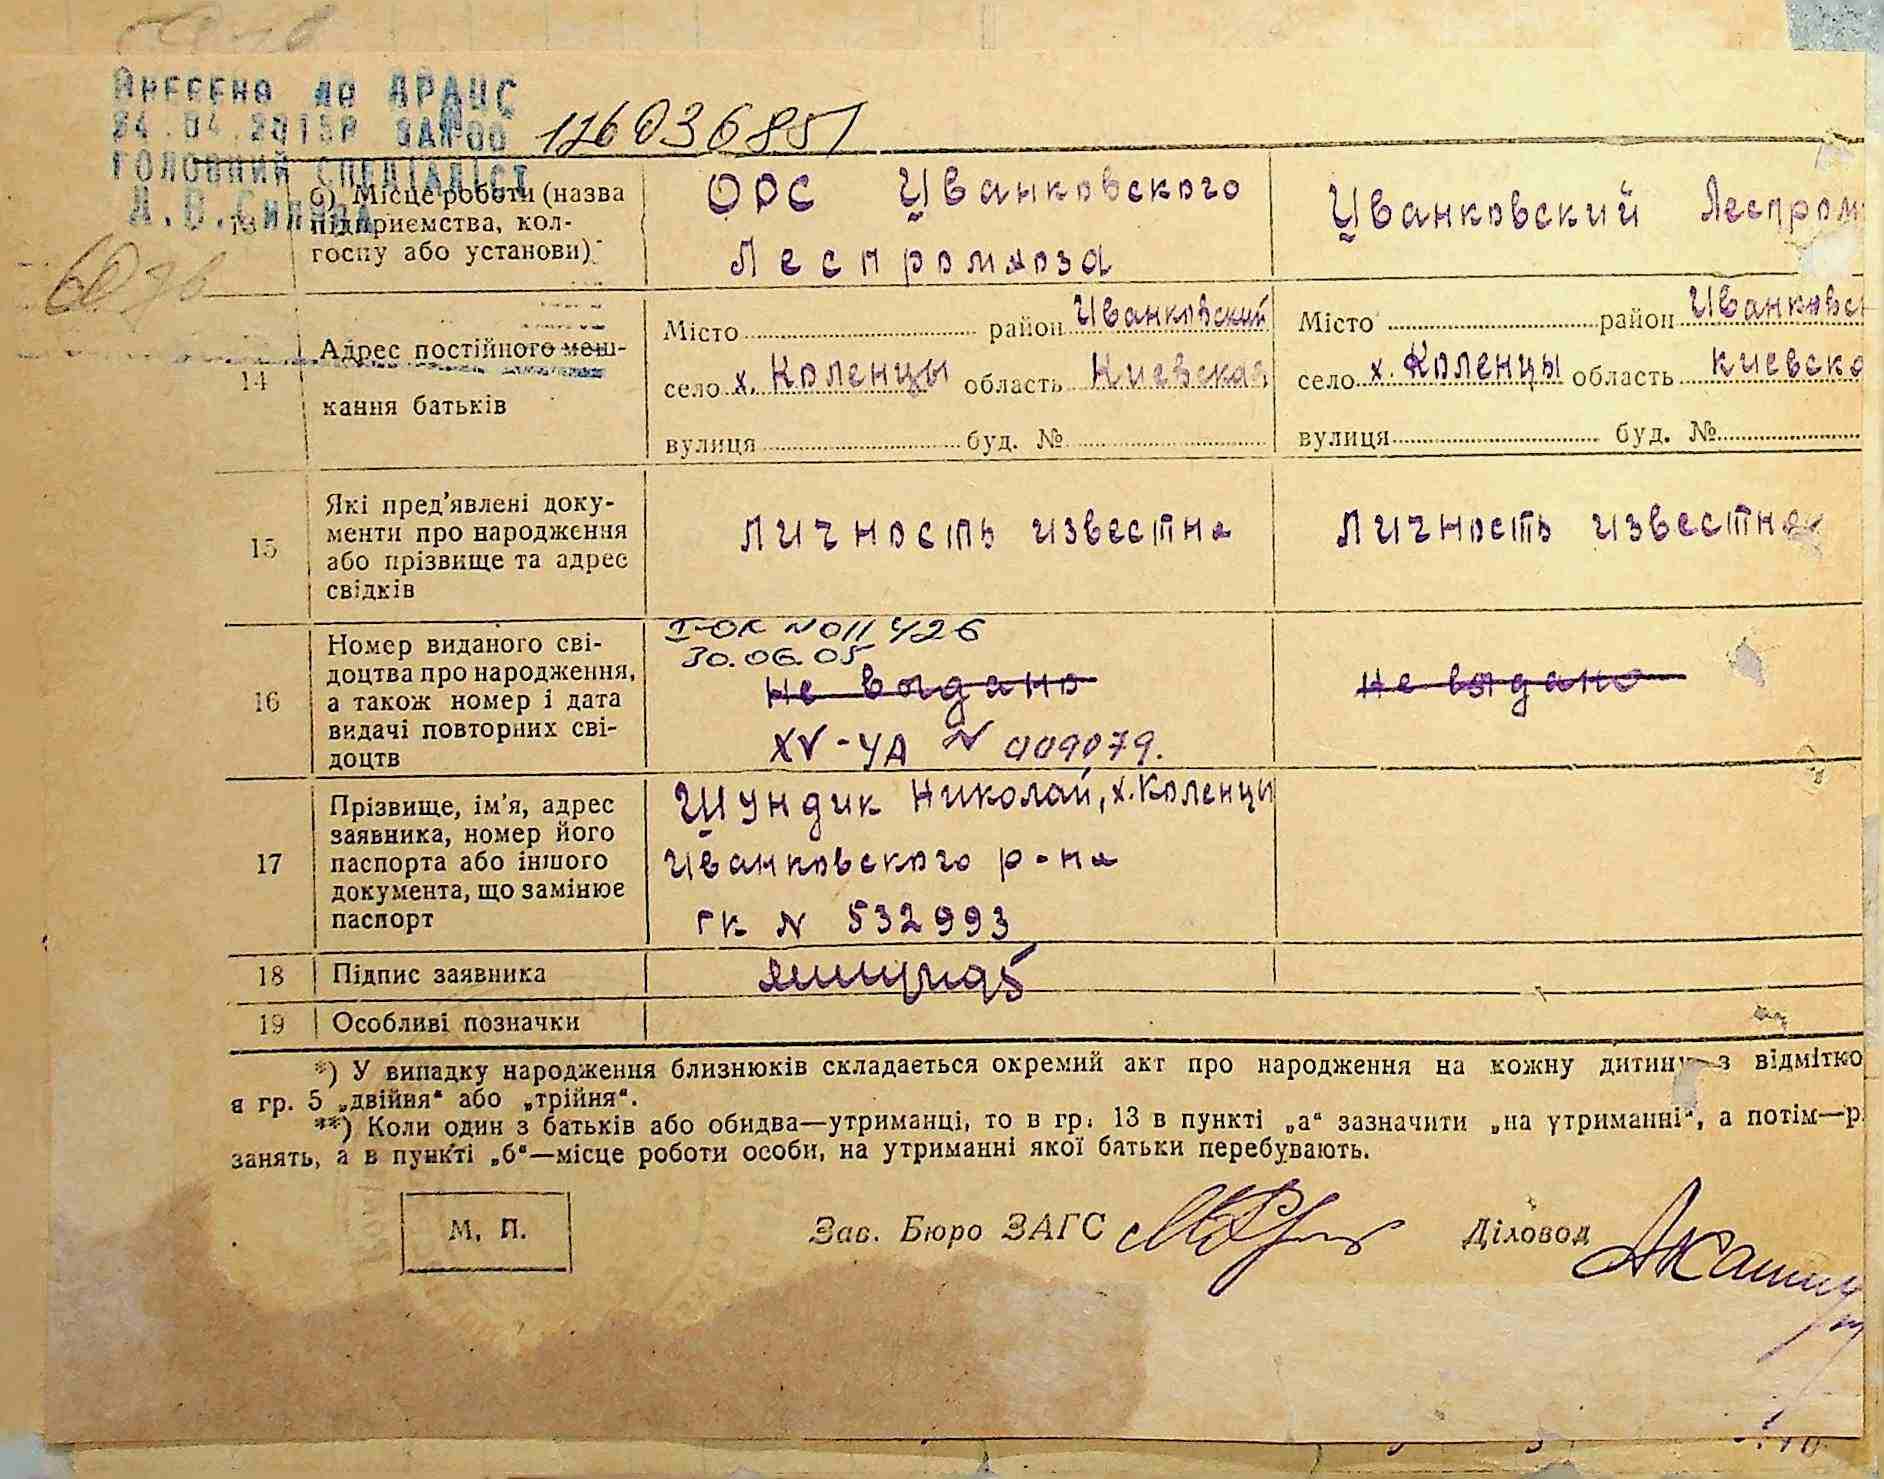 Внесено до ДРАЦС
24.04.2015р ЗАГ00
ГОЛОВНИЙ СПЕЦІАЛІСТ
126036851
13 б) Місце роботи (назва підприємства, колгоспу або установи)
ОРС Иванковского
Леспромхоза
Иванковский Леспром
14 Адрес постійного меш-
кання батьків
Місто район Иванковский
село х. Коленцы область Киевская
вулиця буд. №
Місто район Иванковс
село х. Коленцы область Киевско
вулиця буд. №
15 Які пред'явлені доку-
менти про народження
або прізвище та адрес
свідків
Личность известна
Личность известна
16 Номер виданого сві-
доцтва про народження,
а також номер і дата
видачі повторних сві-
доцтв
І-ОК №011426
30.06.05
Не выдано
XV-УА № 009079.
Не выдано
17 Прізвище, ім'я, адрес
заявника, номер його
паспорта або іншого
документа, що замінює
паспорт
Шундик Николай, х. Коленцы
Иванковского р-на
ГК N 532993
18 Підпис заявника
19 Особливі позначки
*) У випадку народження близнюків складається окремий акт про народження на кожну дитину з відмітко
в гр. 5 „двійня“ або „трійня“.
**) Коли один з батьків або обидва—утриманці, то в гр. 13 в пункті „а“ зазначити „на утриманні“, а потім—р
занять, а в пункті „б“—місце роботи особи, на утриманні якої батьки перебувають.
М. П.
Зав. Бюро ЗАГС
Діловод